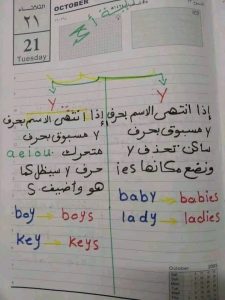 الثلاثاء
OCTOBER
٢١
21
Tuesday
y
إذا انتهى الاسم بحرف
y مسبوق بحرف
ساكن تحذف y
ونضع مكانها ies
baby → babies
lady → ladies
y
إذا انتهى الاسم بحرف
y مسبوق بحرف
متحرك aeiou
حرف y سيظل كما
هو واضيف S
boy → boys
key → keys
October